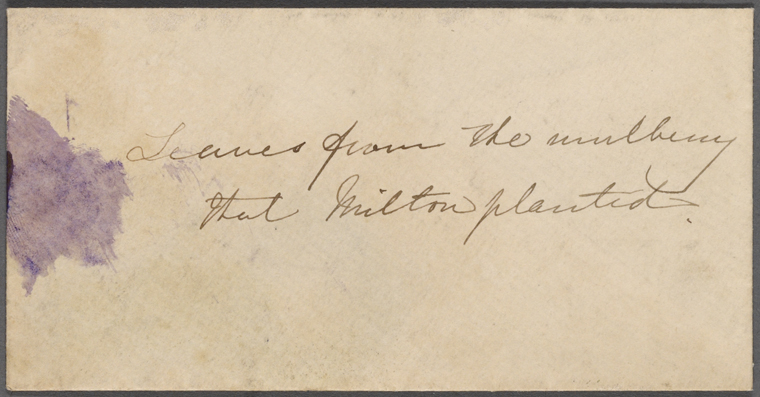 Leaves from the mulberry
that Milton planted.